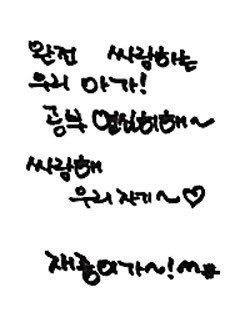 완전 싸랑하는
우리 아가!
공부 열심히해~
싸랑해
우리 자기~♡
재중이가~!